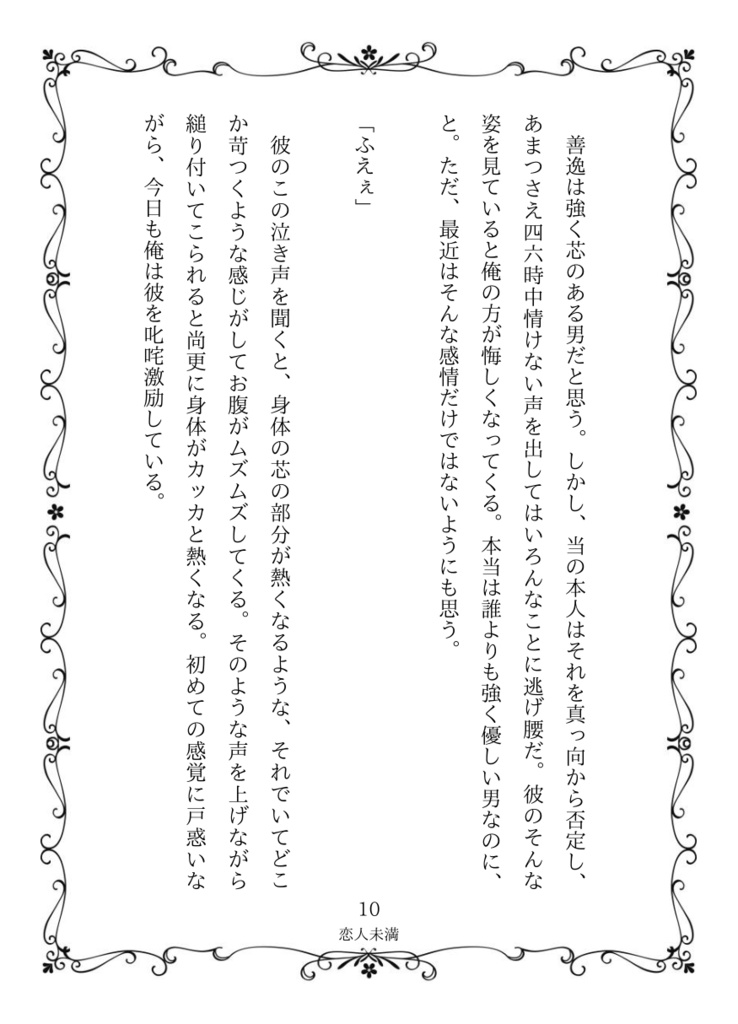 善逸は強く芯のある男だと思う。しかし、当の本人はそれを真っ向から否定し、
あまつさえ四六時中情けない声を出してはいろんなことに逃げ腰だ。彼のそんな
姿を見ていると俺の方が悔しくなってくる。本当は誰よりも強く優しい男なのに、
と。ただ、最近はそんな感情だけではないようにも思う。
「ふえぇ」
彼のこの泣き声を聞くと、身体の芯の部分が熱くなるような、それでいてどこ
か苛つくような感じがしてお腹がムズムズしてくる。そのような声を上げながら
縋り付いてこられると尚更に身体がカッカと熱くなる。初めての感覚に戸惑いな
がら、今日も俺は彼を叱咤激励している。
10
恋人未満